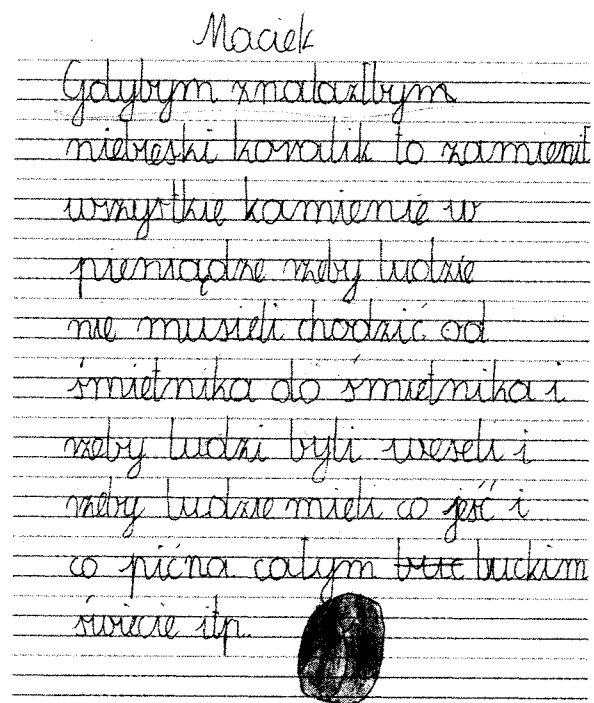 Maciek
Gdybym znalazłbym
niebręski koralik to zamienił
wszystkie kamienie w
pieniądze rzeby ludzie
nie musieli chodzić od
śmietnika do śmietnika i
rzeby ludzi byli weseli i
rzeby ludzie mieli co jeść i
co pićna całym buckim
świecie itp.